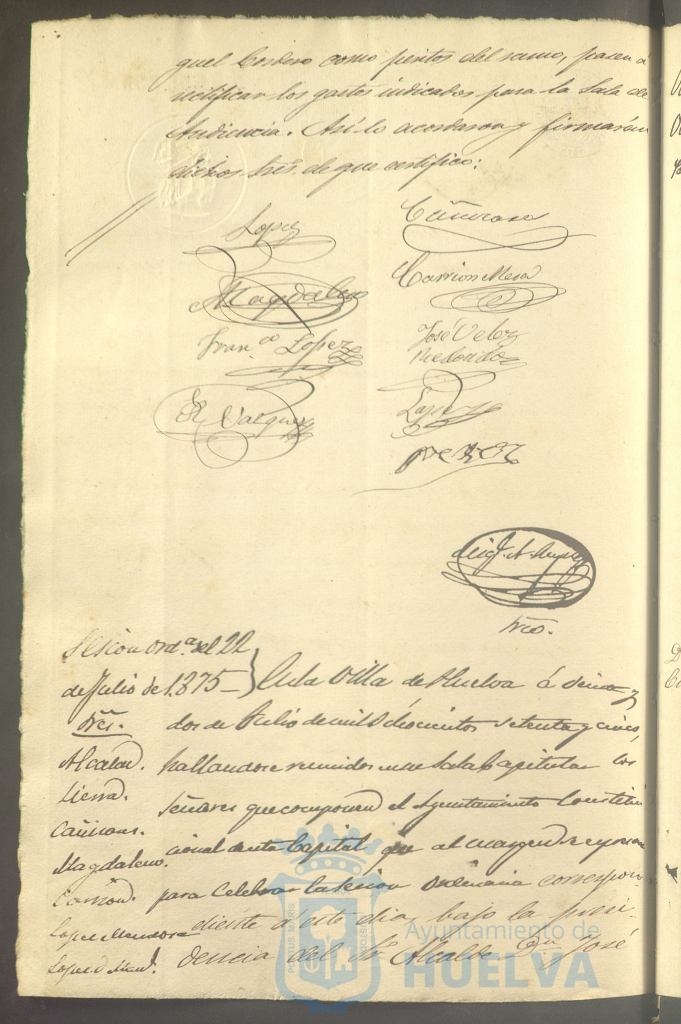 guel Cordero como peritos del ramo, pasen á
notificar los gastos indicados para la Sala de
Audiencia. Así lo acordaron y firmarán
dichos Sres. de que certifico:
Lopez
Cañizares
Magdaleno
Carrion Mesa
Fran.co Lopez
José Velez
R. Vazquez
Lopez
Perez
Srio.
Sesion ord.a del 22
de Julio de 1.875 —
En la Villa de Huelva á veinte y
Sres.
dos de Julio de mil ochocientos setenta y cinco,
Alcalde.
hallandose reunidos en la Sala Capitular los
Señores que componen el Ayuntamiento Constitu
cional de esta Capital, que al margen se espresan
Magdaleno.
para celebrar la sesion ordinaria correspon
Carrion.
diente á este dia, bajo la presi-
Lopez Mendoza
dencia del Sr. Alcalde Dn. José
Ayuntamiento de
HUELVA